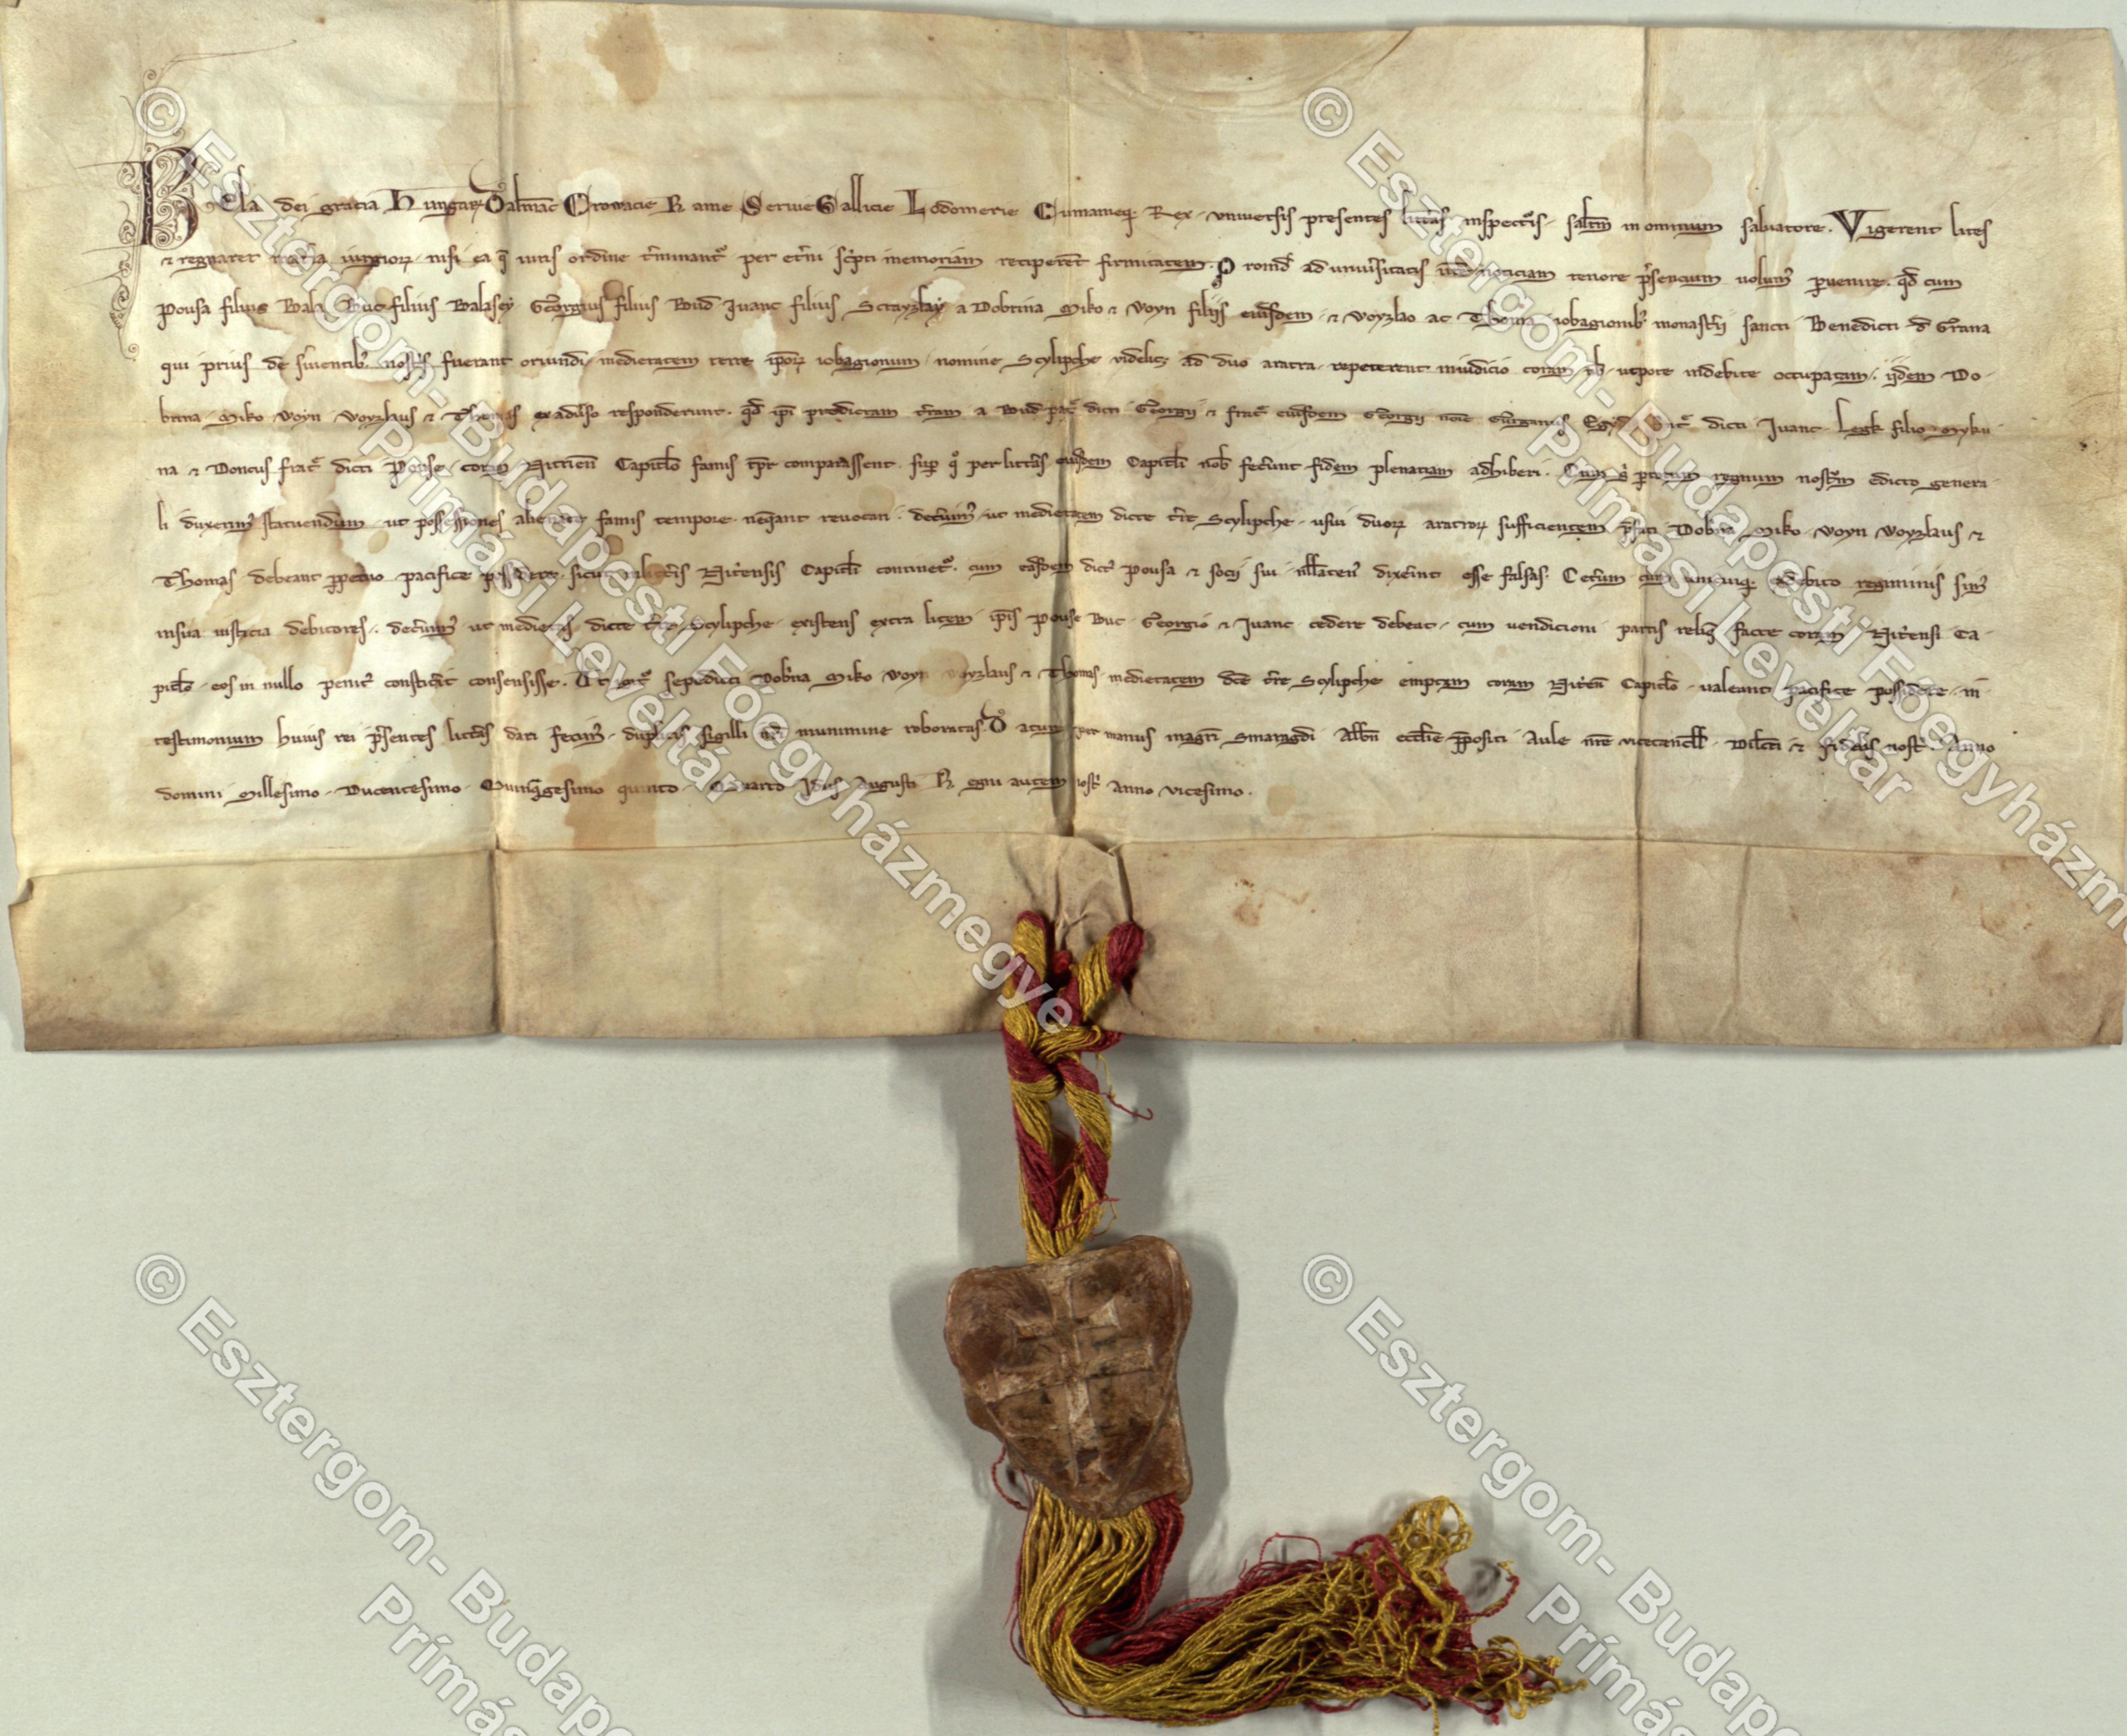 Bela dei gracia Hungar Dalmac Crowacie Rame Servie Gallicie Lodomerie Cumanieq Rex. universis presentes litteras inspectis. salutm in omnium salvatore. Vigerent lites
et regnaret iurgior. nisi ea q iuris ordine tminant per etni scpti memoriam reciperet firmitatem. Proinde ad univsitatis vre noticiam tenore psencium volum pvenire. qd cum
Pousa filius Buc filius Balasey Georgius filius Bud Ivanc filius Scrayzlay a Dobrina Miko et Voyn filiis eiusdem. et Voyzlao ac Thoma iobagionib monastii sancti Benedicti d Grana
qui prius de sientib nostris fuerant oriundi. medietatem terre ipor iobagionum. nomine Scylipche videlic ad duo aratra. repeterent in iudicio coram nob. utpote indebite occupatam. iidem Do-
brina. Miko Voyn. Voyzlaus et Thomas ex adverso responderunt. qd ipi predictam tram a Bud pat dicti Georgii et frat eiusdem Georgii noie Egyd dicti Ivanc. Legk filio Myku-
na et Doncus frat dicti Pouse. coram Nitrien Capitlo famis tpr comparassent. sup q per litteras eiusdem Capitli nob fecunt fidem plenariam adhiberi. Cum regnum nostrm edicto genera-
li duxerim statuendum. ut possessiones alienate famis tempore. neqeant revocari. devim ut medietatem dicte tre Scylipche. usui duor aratror sufficientem psati Dobrina Miko. Voyn Voyzlaus et
Thomas debeant ppetuo pacifice possidere. sicut litteris Nitrensis Capitli continet. cum easdem dict Pousa et socii sui nllaten dixerint esse falsas. Cetum cum unicuiq ex debito regiminis sim
in sua iusticia debitores. devim ut medietas dicte tre Scylipche. existens extra litem ipis Pouse Buc. Georgio et Ivanc cedere debeat. cum vendicioni partis reliq facte coram Nitensi Ca-
pitlo. eos in nullo penit constiterit consensisse. Ut sepedicti Dobrina Miko Voyn Voyzlaus et Thomas. medietatem dce tre Scylipche emptam coram Nitien Capitlo. valeant pacifice possidere. in
testimonium huius rei psentes litteras dari fecim. duplicis sigilli nri munimine roboratas. Datum per manus magri Smaragdi. Alben ecclie ppositi Aule nre vicecancell. Dilecti et fidelis nostri. Anno
domini Millesimo. Ducentesimo. Quinqagesimo quinto. Quarto Idus Augusti Regni autem nostri Anno vicesimo.
© Esztergom- Budapesti Főegyházmegye
Prímási Levéltár
© Esztergom- Budapesti Főegyházme
Prímási Levéltár
© Esztergom- Budape
Prímás
© Esztergom- Budapo
Prímás